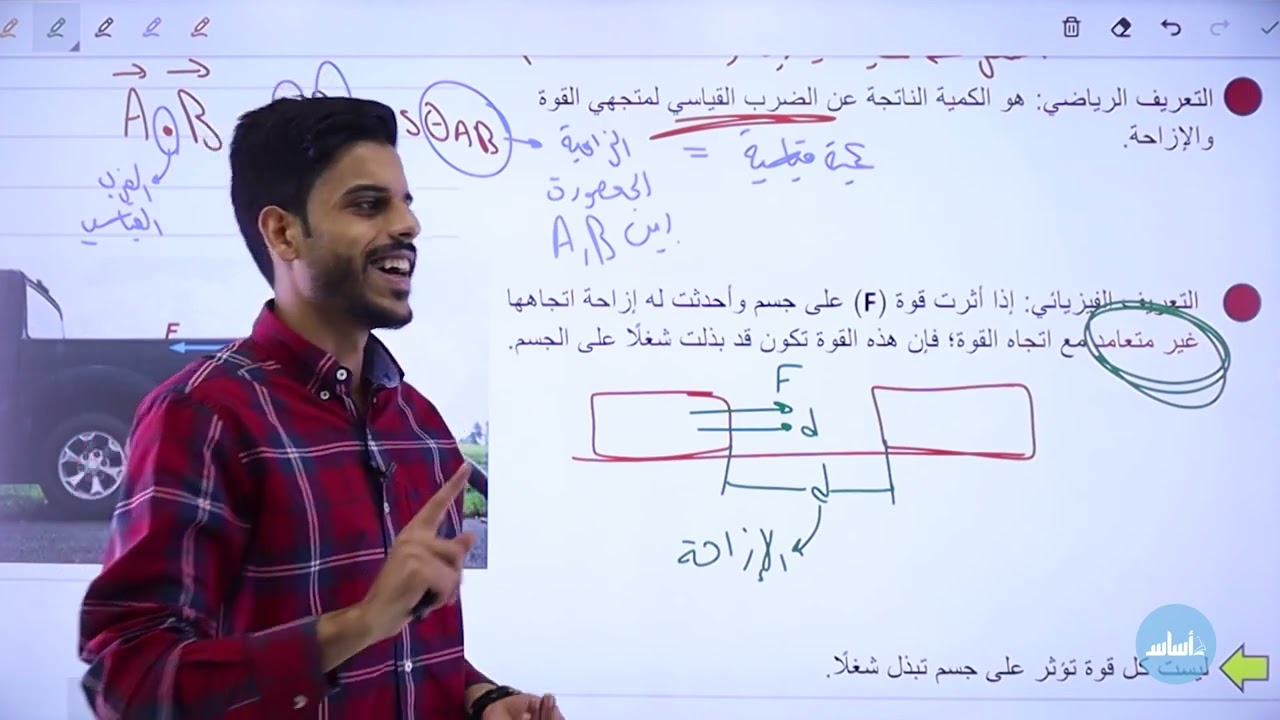 التعريف الرياضي: هو الكمية الناتجة عن الضرب القياسي لمتجهي القوة
والإزاحة.
A B
θAB
الضرب
القياسي
الزاوية
المحصورة
بين A, B
= كمية قياسية
التعريف الفيزيائي: إذا أثرت قوة (F) على جسم وأحدثت له إزاحة اتجاهها
غير متعامد مع اتجاه القوة؛ فإن هذه القوة تكون قد بذلت شغلًا على الجسم.
F
F
d
d
الإزاحة
ليست كل قوة تؤثر على جسم تبذل شغلًا.
أساس